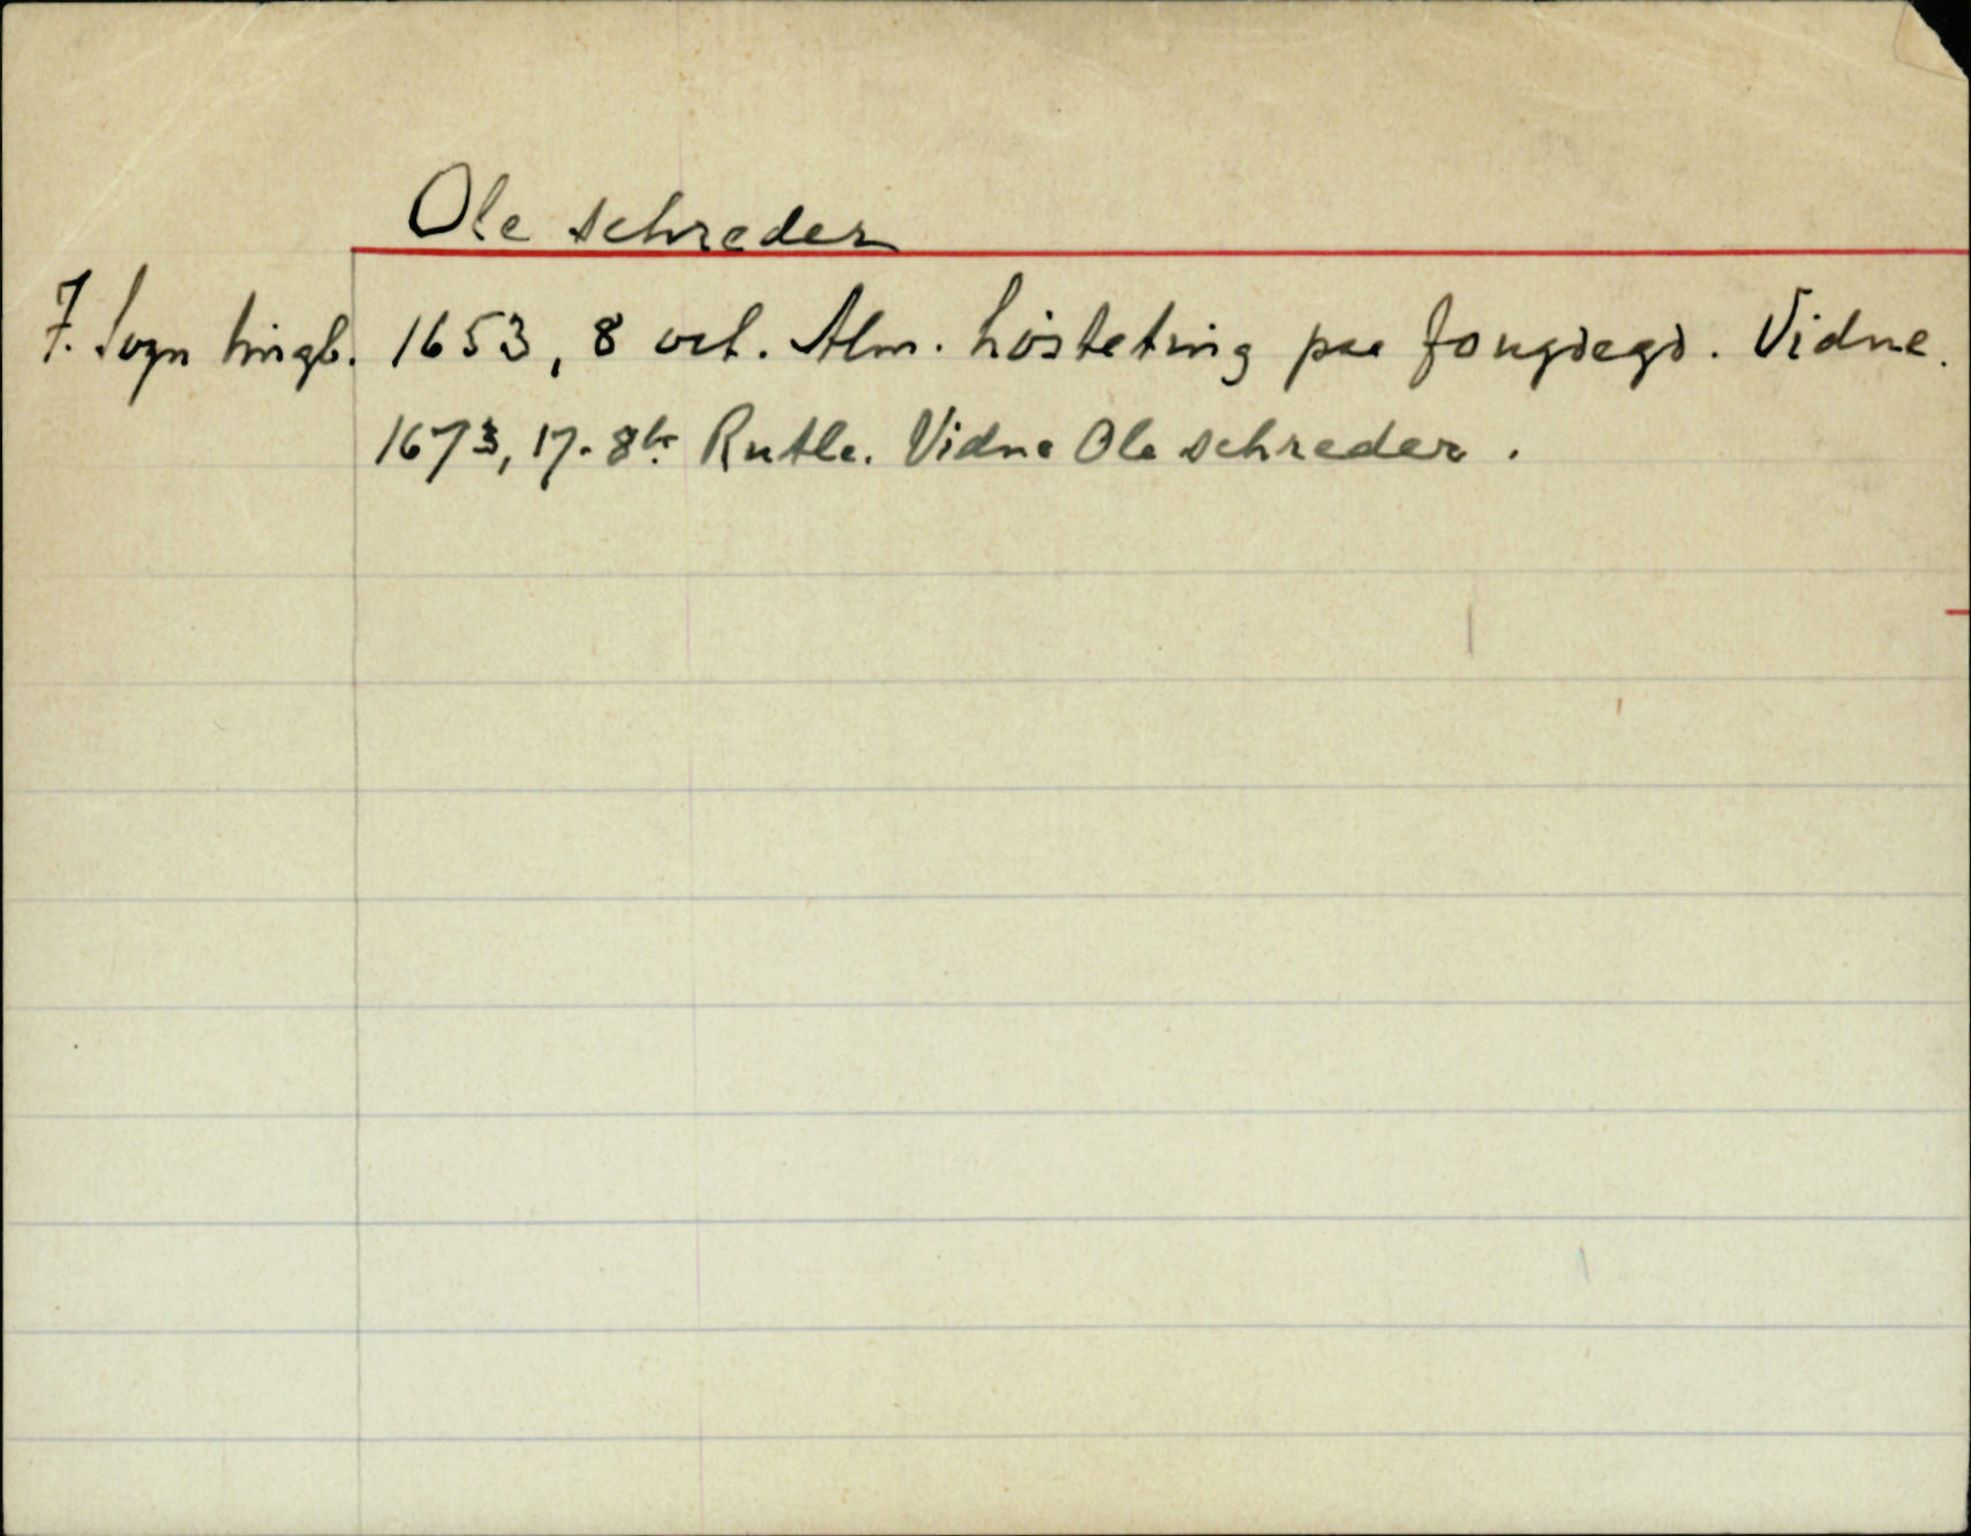 Ole schreder
7. Sogn tingb. 1653, 8 oct. Alm. hösteting paa . Vidne.
1673, 17. 8br Rutle. Vidne Ole schreder.